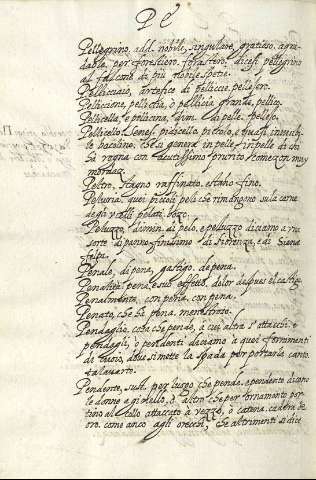 P E
Pellegrino, add. nobile, singulare, gratioso, agra-
dable. per forestiero, forastero. dicesi pellegrino
al falcone di più nobile spetie.
Pellicciaio, artefice di pelliccie, pellejero.
Pelliccione, pelliccia, ò pellicia grande, pellico.
Pellicella e pellicina, dim. di pelle. pellejo.
Pellicello Senese. pidicello, piccolo, e quasi invisibi-
le bacolino. che si genera in pelle in pelle di chi
ha rogna con acutissimo prurito, comezon muy
mordaz.
Peltro, stagno raffinato, estaño fino.
Peluria, quei piccoli pela che rimangono sulla carne
degli ucelli pelati. bozo.
Peluzzo, dimin. di pelo, e peluzzo diciamo a una
sorte di panno finissimo di Fiorenza, e di Siena
felpa.
Penale, di pena, gastigo. de pena.
Penalità, pena e suo effetto. dolor despues el castigo.
Penalmente, con pena. con pena.
Penato, che hà pena. menesteroso.
Pendaglio, cosa che pende, à cui altra s'attacchi. e
pendagli, ò pendenti diciamo a quei fornimenti
di cuoio, dove si mette la spada per portarla canto.
talavarto.
Pendente, sust. per luogo che penda. e pendente dicono
le donne a gioiello, ò altro che per ornamento por-
tino al collo attaccato à vezzo, ò catena. cadena de
oro. come anco agli orecchi, che altrimenti si dice